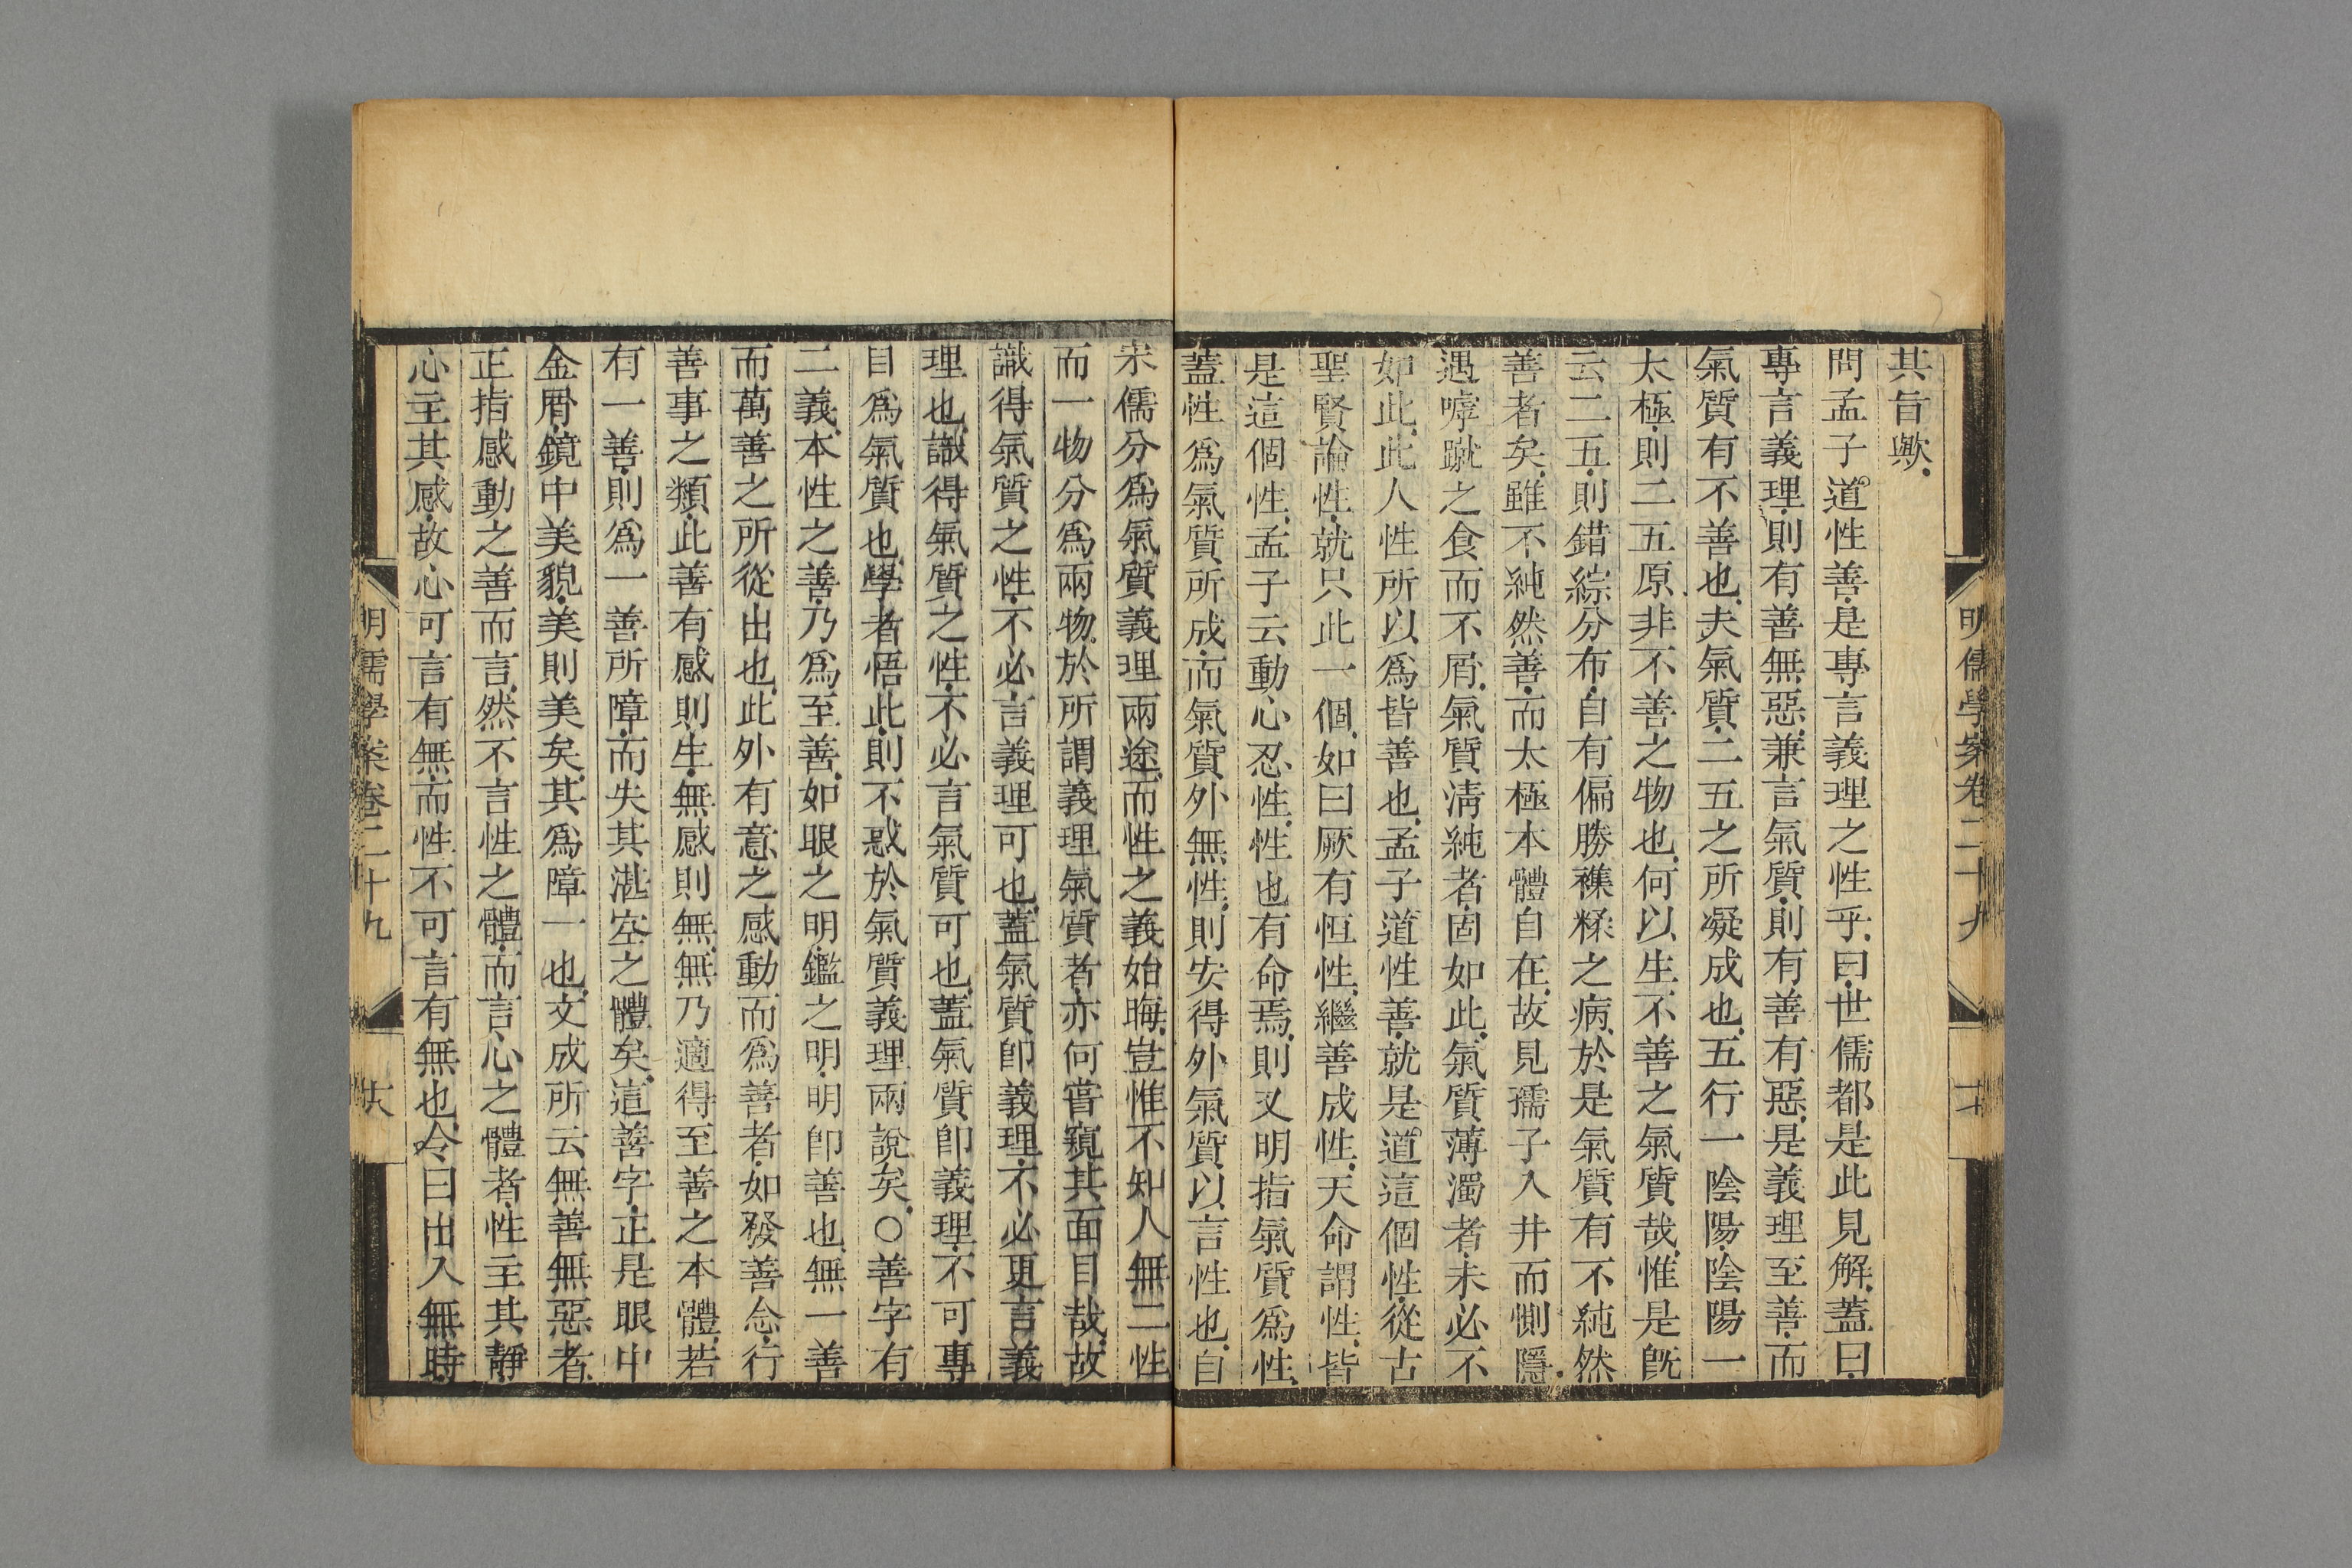 明儒學案卷二十九
十七
其旨歟
問孟子道性善是專言義理之性乎曰世儒都是此見解蓋曰
專言義理則有善無惡兼言氣質則有善有惡是義理至善而
氣質有不善也夫氣質二五之所凝成也五行一陰陽陰陽一
太極則二五原非不善之物也何以生不善之氣質哉惟是旣
云二五則錯綜分布自有偏勝襍糅之病於是氣質有不純然
善者矣雖不純然善而太極本體自在故見孺子入井而惻隱
遇嘑蹴之食而不屑氣質淸純者固如此氣質薄濁者未必不
如此此人性所以爲皆善也孟子道性善就是道這個性從古
聖賢論性就只此一個如曰厥有恒性繼善成性天命謂性皆
是這個性孟子云動心忍性性也有命焉則又明指氣質爲性
蓋性爲氣質所成而氣質外無性則安得外氣質以言性也自
宋儒分爲氣質義理兩途而性之義始晦豈惟不知人無二性
而一物分爲兩物於所謂義理氣質者亦何嘗窺其面目哉故
識得氣質之性不必言義理可也蓋氣質卽義理不必更言義
理也識得氣質之性不必言氣質可也蓋氣質卽義理不可專
目爲氣質也學者悟此則不惑於氣質義理兩說矣○善字有
二義本性之善乃爲至善如眼之明鑑之明明卽善也無一善
而萬善之所從出也此外有意之感動而爲善者如發善念行
善事之類此善有感則生無感則無無乃適得至善之本體若
有一善則爲一善所障而失其湛空之體矣這善字正是眼中
金屑鏡中美貌美則美矣其爲障一也文成所云無善無惡者
正指感動之善而言然不言性之體而言心之體者性主其靜
心主其感故心可言有無而性不可言有無也今曰出入無時
明儒學案卷二十九
十八